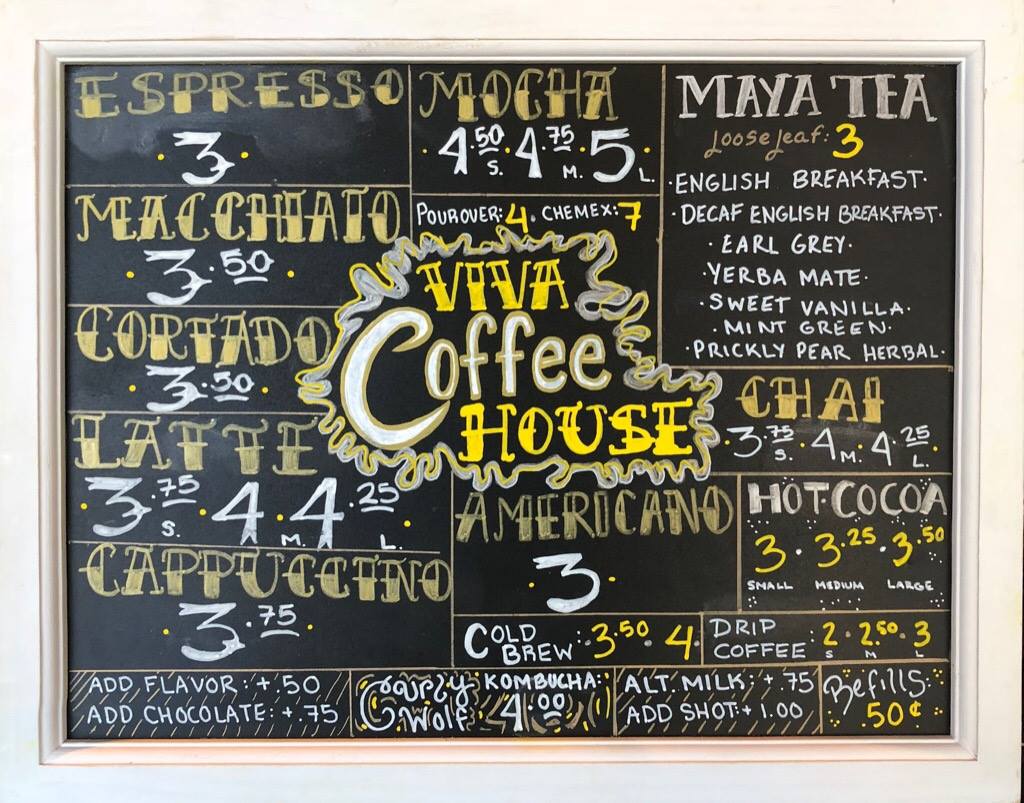 ESPRESSO
·3·
MACCHIATO
·3.50·
CORTADO
·3.50
LATTE
3.75 S. 4 M. 4.25 L.
CAPPUCCINO
·3.75·
MOCHA
·4.50 S. ·4.75 M. 5 L.
POUROVER: 4 · CHEMEX: 7
VIVA
Coffee
HOUSE
MAYA TEA
Loose Leaf: 3
·ENGLISH BREAKFAST·
·DECAF ENGLISH BREAKFAST·
·EARL GREY·
·YERBA MATE·
·SWEET VANILLA·
·MINT GREEN·
·PRICKLY PEAR HERBAL·
CHAI
·3.75 S. ·4 M. 4.25 L.
AMERICANO
·3·
HOT COCOA
3 · 3.25 · 3.50
SMALL MEDIUM LARGE
COLD BREW: 3.50 4
DRIP COFFEE: 2 S · 2.50 M · 3 L
ADD FLAVOR: +.50
ADD CHOCOLATE: +.75
Curly Wolf
KOMBUCHA:
4.00
ALT. MILK: +.75
ADD SHOT: + 1.00
Refills:
.50¢